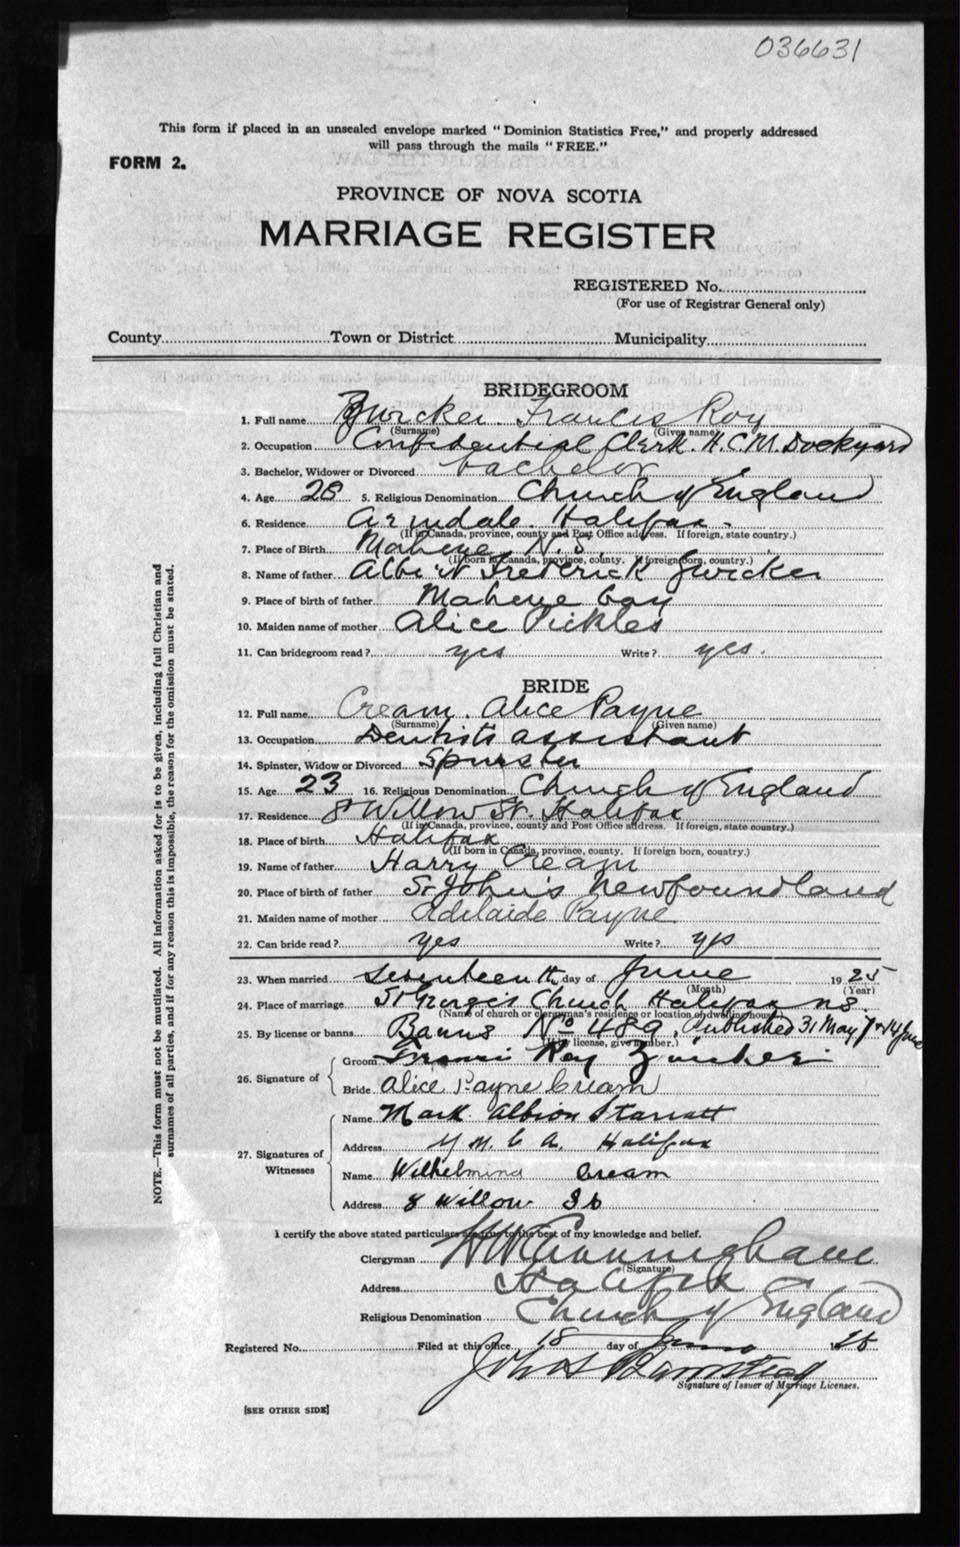 036631
This form if placed in an unsealed envelope marked "Dominion Statistics Free," and properly addressed
will pass through the mails "FREE."
FORM 2.
PROVINCE OF NOVA SCOTIA
MARRIAGE REGISTER
REGISTERED No.
(For use of Registrar General only)
County Town or District Municipality
BRIDEGROOM
1. Full name Zwicker Francis Roy
(Surname) (Given name)
2. Occupation Confidential Clerk. H.C.M. Dockyard
3. Bachelor, Widower or Divorced bachelor
4. Age 28 5. Religious Denomination Church of England
6. Residence Armdale. Halifax
(If in Canada, province, county and Post Office address. If foreign, state country.)
7. Place of Birth Mahone N.S.
(If born in Canada, province, county. If foreign born, country.)
8. Name of father Albert Frederick Zwicker
9. Place of birth of father Mahone bay
10. Maiden name of mother Alice Pickles
11. Can bridegroom read? yes Write? yes.
BRIDE
12. Full name Cream. Alice Payne
(Surname) (Given name)
13. Occupation Dentists assistant
14. Spinster, Widow or Divorced Spinster
15. Age 23 16. Religious Denomination Church of England
17. Residence 8 Willow St. Halifax
(If in Canada, province, county and Post Office address. If foreign, state country.)
18. Place of birth Halifax
(If born in Canada, province, county. If foreign born, country.)
19. Name of father Harry Cream
20. Place of birth of father St John's Newfoundland
21. Maiden name of mother Adelaide Payne
22. Can bride read? yes Write? yes
23. When married seventeenth day of June 1925
(Month) (Year)
24. Place of marriage St George's Church Halifax N.S.
(Name of church or clergyman's residence or location of dwelling house)
25. By license or banns Banns No 489. Published 31 May 7 & 14 June
(If license, give number.)
26. Signature of
Groom Francis Roy Zwicker
Bride Alice Payne Cream
27. Signatures of Witnesses
Name Mark Albion Starratt
Address Y.M.C.A. Halifax
Name Wilhelmina Cream
Address 8 Willow St
I certify the above stated particulars are true to the best of my knowledge and belief.
Clergyman H W Cunningham
(Signature)
Address Halifax
Religious Denomination Church of England
Registered No. Filed at this office 18 day of June 1925
Signature of Issuer of Marriage Licenses.
[SEE OTHER SIDE]
NOTE.—This form must not be mutilated. All information asked for is to be given, including full Christian and
surnames of all parties, and if for any reason this is impossible, the reason for the omission must be stated.